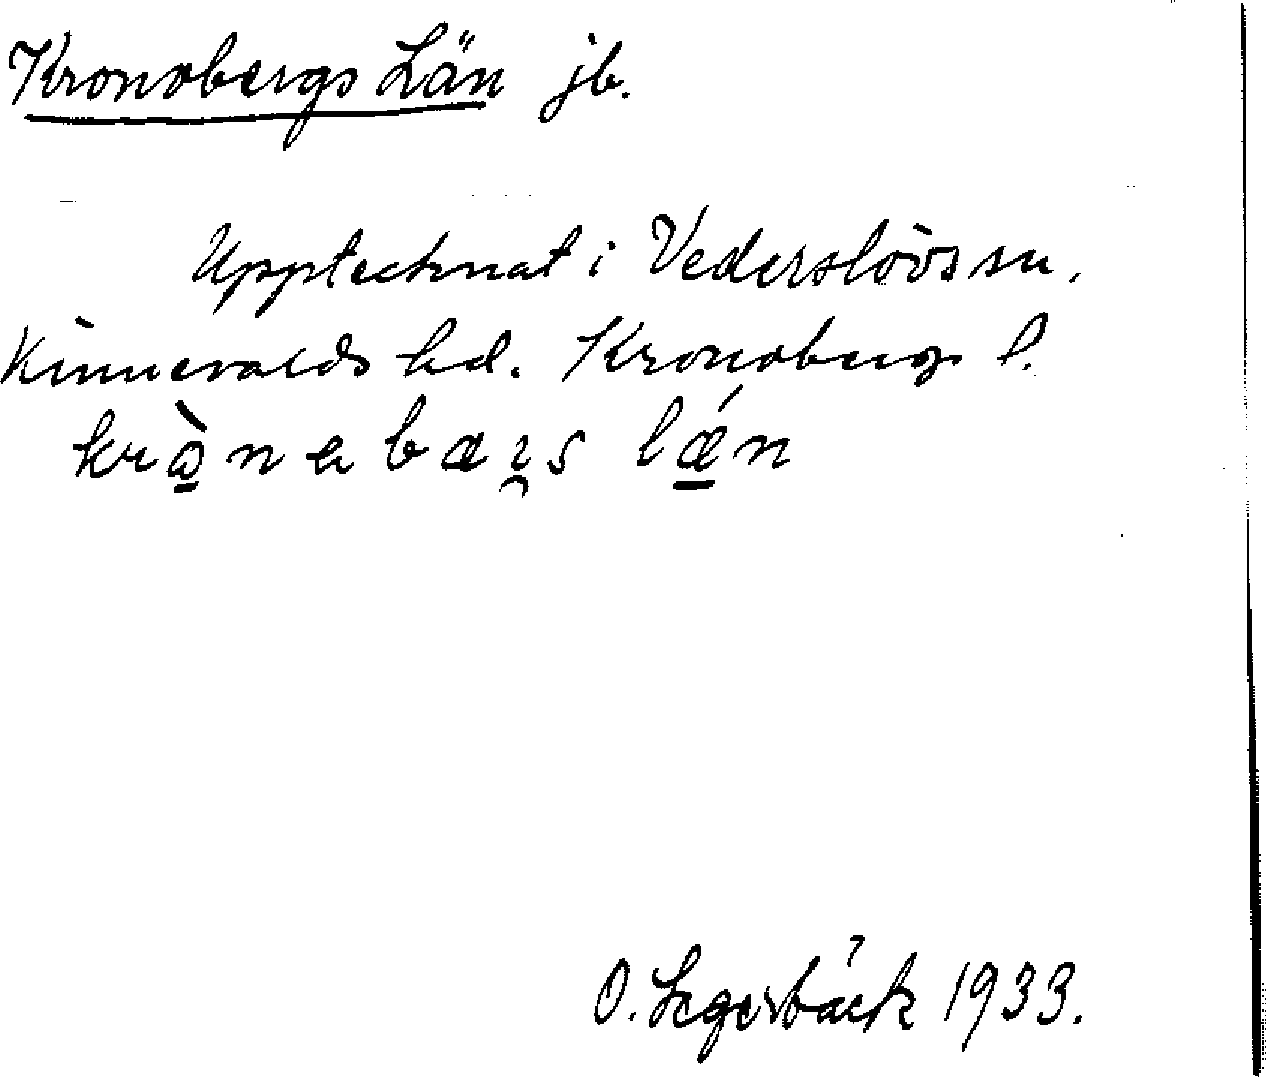 Kronobergs Län jb.
Upptecknat i Vederslövs sn,
Kinnevalds hd. Kronobergs l.
krò̱nabæɪ̯s lǽ̱n
O. Segerbäck 1933.